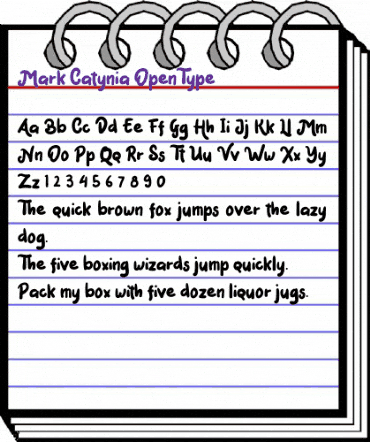 Mark Catynia OpenType
Aa Bb Cc Dd Ee Ff Gg Hh Ii Jj Kk Ll Mm
Nn Oo Pp Qq Rr Ss Tt Uu Vv Ww Xx Yy
Zz 1 2 3 4 5 6 7 8 9 0
The quick brown fox jumps over the lazy
dog.
The five boxing wizards jump quickly.
Pack my box with five dozen liquor jugs.